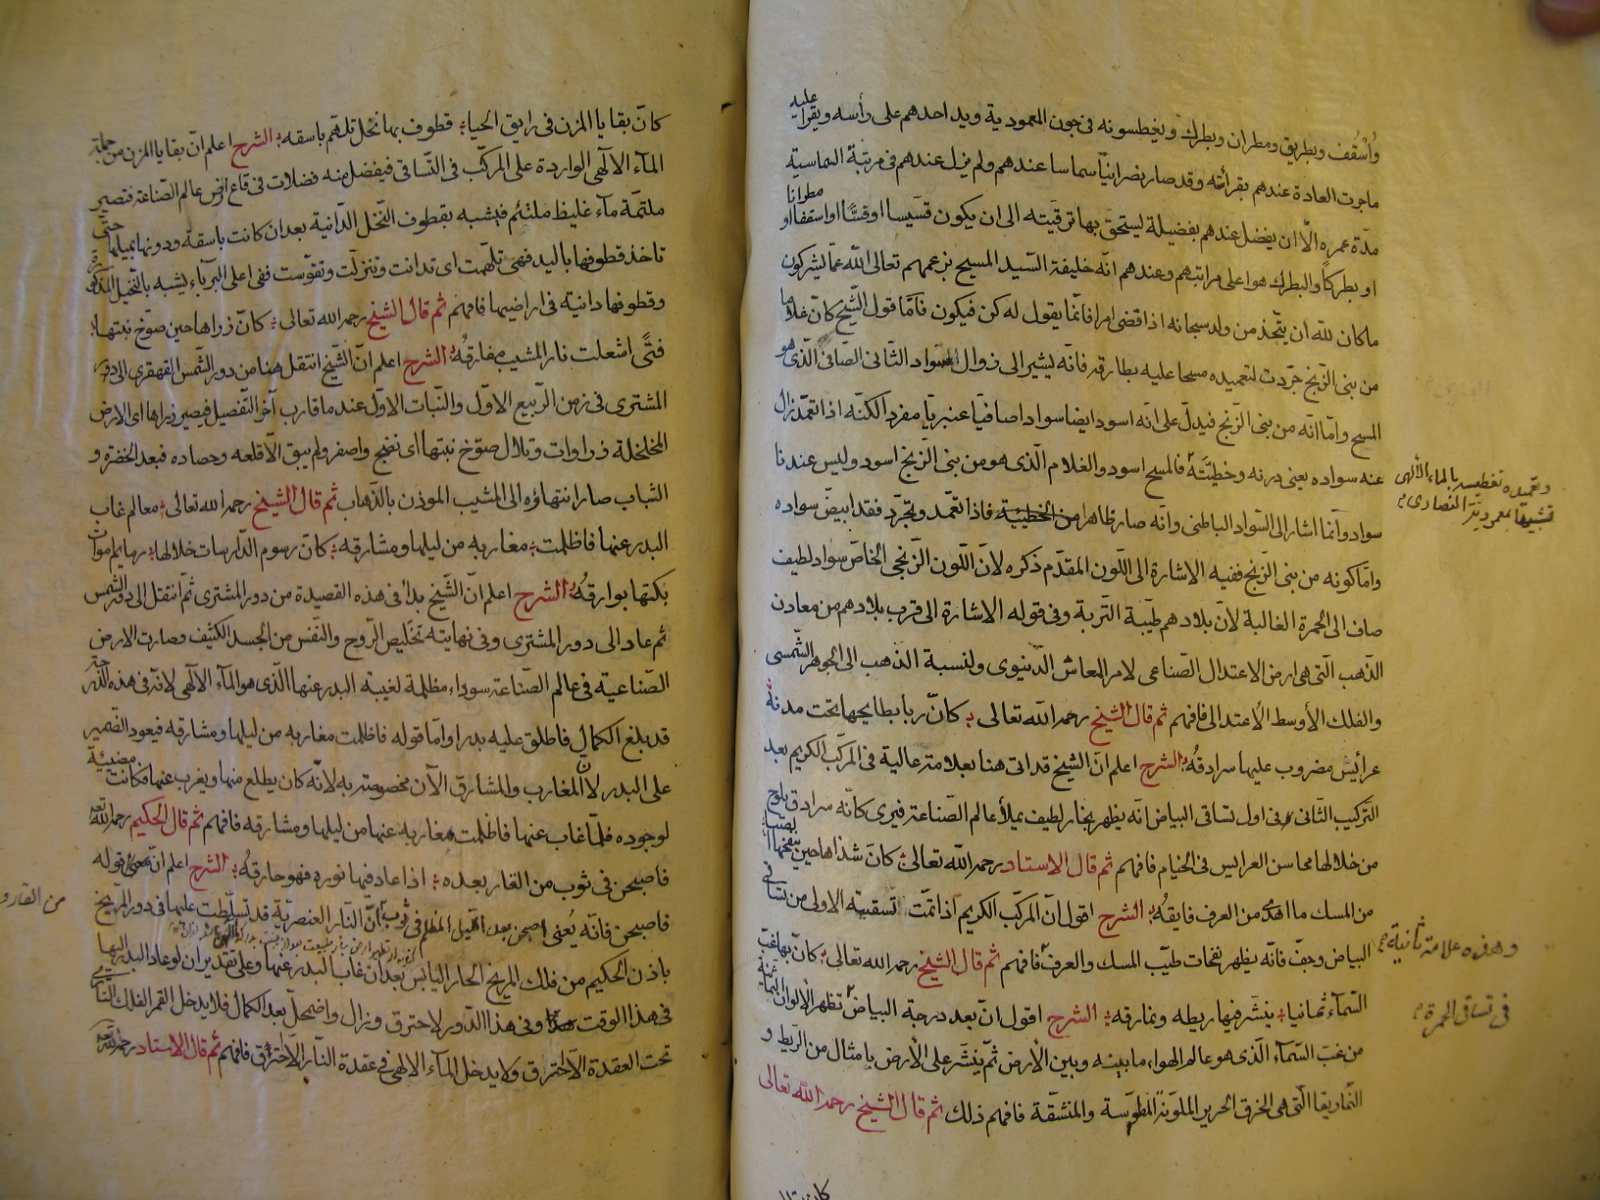 وأسقف وبطريق ومطران وبطرك ويغطسونه في جرن المعمودية ويد احدهم على رأسه ويقرا عليه
ماجرت العادة عندهم بقرأته وقد صار نصرانيّا سماسا عندهم ولم يزل عندهم في مرتبة الشماسية
مدّة عمره الّا ان يفضل عندهم بفضيلة ليستحق بها ترقيته الى ان يكون قسّيسا او قسّا او اسقفا او مطرانا
او بطركا والبطرك هو اعلى مراتبهم وعندهم انّه خليفة السّيد المسيح بزعمهم تعالى الله عمّا يشركون
ما كان لله ان يتّخذ من ولد سبحانه اذا قضى امرا فانّما يقول له كن فيكون فامّا قول الشّيخ كان غلاما
من بنى الزّنج جرّدت لتعميده مسحا عليه بطارقه فانّه يشير الى زوال السّواد الثانى الصّافى الّذى هو
المسح وامّا انّه من بنى الزّنج فيدلّ على انّه اسود ايضا سوادا صافيا عنبريّا مفرد الكنّه اذا تعمّد زال
عنه سواده يعنى درنه وخطيئته فالمسح اسود والغلام الّذى هو من بنى الزّنج اسود وليس عندنا
سواد وانّما اشار الى السّواد الباطنى وانّه صار ظاهرا من الخطيئة فاذا تعمّد وتجرّد فقد ابيضّ سواده
وامّا كونه من بنى الزّنج ففيه الاشارة الى اللّون المقدّم ذكره لانّ اللّون الزّنجى الخاصّ سواد لطيف
صاف الى الحمرة الغالبة لانّ بلادهم طيّبة التّربة وفى قوله الاشارة الى قرب بلادهم من معادن
الذّهب الّتى هى ارض الاعتدال الصّناعى لامر المعاش الدّنيوى ولنسبة الذّهب الى الجوهر الشّمسى
والفلك الأوسط الاعتدالى فافهم ثم قال الشّيخ رحمه الله تعالى كانّ ربا بطايحها تحت مدنة
عرائس مضروب عليها سرادقه الشرح اعلم انّ الشّيخ قد اتى هنا بعلامة عالية فى المركّب الكريم بعد
التركيب الثّانى وفى اول تساقى البياض انّه يظهر بخار لطيف يملأ عالم الصّناعة فيرى كانّه سرادق يلوح
من خلالها محاسن العرايس فى الخيام فافهم ثم قال الاستاد رحمه الله تعالى كانّ شذاها حين ينفحها الصّبا
من المسك ما اهدى من العرف فايقه الشرح اقول انّ المركّب الكريم اذا تمّت تسقيته الاولى من تساقى
البياض وجفّ فانّه يظهر نفحات طيّب المسك والعرف فافهم ثم قال الشّيخ رحمه الله تعالى كانّ بها غبّ
السّمآء ثمانيا ينشّر فيها ريطه ونمارقه الشرح اقول انّ بعد درجة البياض تظهر الألوان الثمانية
من غبّ السّمآء الّذى هو عالم الهواء ما بينه وبين الأرض ثمّ ينشّر على الأرض بامثال من الرّيط و
النّمارق الّتى هى الخرق الحرير الملوّنة المطوّسة والمنشّقة فافهم ذلك ثم قال الشّيخ رحمه الله تعالى
وتعميده تغطيسه بالماء الالهى
تشبيها بمعموديّة النّصارى
وهذه علامة ثانية
فى تساقى الحمرة
كانّ بقايا المزن فى رايق الحيا قطوف بها نخل تلهّم باسقه الشرح اعلم انّ بقايا المزن من جملة
المآء الالهى الواردة على المركّب فى التّساقى فيفضل منه فضلات فى قاع ارض عالم الصّناعة فتصير
ملتمّة مآء غليظ ملتئم فيشبه بقطوف النّخل الدّانية بعد ان كانت باسقة ودونها بميلها حتّى
تاخذ قطوفها باليد فهى تلهّمت اى تدانت وتنزلّت وتقوّست ففى اعلى البرباء يشبه بالنّخيل المذكورة
وقطوفها دانية فى اراضيها فافهم ثم قال الشّيخ رحمه الله تعالى كانّ ذراها حين صوّخ نبتها
فتًى اشعلت نار المشيب مفارقه الشرح اعلم انّ الشّيخ انتقل هنا من دور الشّمس القهقرى الى دور
المشترى فى زمن الرّبيع الاوّل والنّبات الاوّل عند ما قارب آخر التّفصيل فيصير ذراها اى الارض
المخلخلة ذراوات وتلال صوّخ نبتها اى نضج واصفر ولم يبق الّا قلعه وحصاده فبعد الخضرة و
الشّباب صار انتهاؤه الى المشيب الموذن بالذّهاب ثم قال الشّيخ رحمه الله تعالى معالم غاب
البدر عنها فاظلمت مغاربه من ليلها ومشارقه كانّ رسوم الدّارسات خلالها رهايم موات
بكتها بوارقه الشرح اعلم انّ الشّيخ بدأ فى هذه القصيدة من دور المشترى ثمّ انتقل الى دور الشّمس
ثم عاد الى دور المشترى وفى نهايته تخليص الرّوح والنّفس من الجسد الكثيف وصارت الارض
الصّناعية فى عالم الصّناعة سوداء مظلمة لغيبة البدر عنها الّذى هو المآء الالهى لانّه فى هذه الدّرجة
قد بلغ الكمال فاطلق عليه بدرا وامّا قوله فاظلمت مغاربه من ليلها ومشارقه فيعود الضّمير
على البدر لانّ المغارب والمشارق الآن مخصوصة به لانّه كان يطلع منها ويغرب عنها فكانت مضيئة
لوجوده فلمّا غاب عنها فاظلمت مغاربه عنها من ليلها ومشارقه فافهم ثم قال الحكيم رحمه الله
فاصبحن فى ثوب من القار بعده اذا عاد فيها نوره فهو حارقه الشرح اعلم انّ معنى قوله
فاصبحن فانّه يعنى اصبحن بعد اللّيل المظلم فى ثوب انّ النّار العنصريّة قد تسلّطت عليها فى دور المرّيخ
باذن الحكيم من فلك المريخ الحار اليابس بعد ان غاب البدر عنها وعلى تقدير ان لو عاد البدر اليها
فى هذا الوقت وفى هذا الدّور لاحترق وزال واضمحلّ بعد الكمال فلا يدخل القمر الفلك النّارى
تحت العقدة الّا احترق ولا يدخل المآء الالهى فى عقدة النّار الّا احترق فافهم ثم قال الاستاد رحمه الله
من القار و